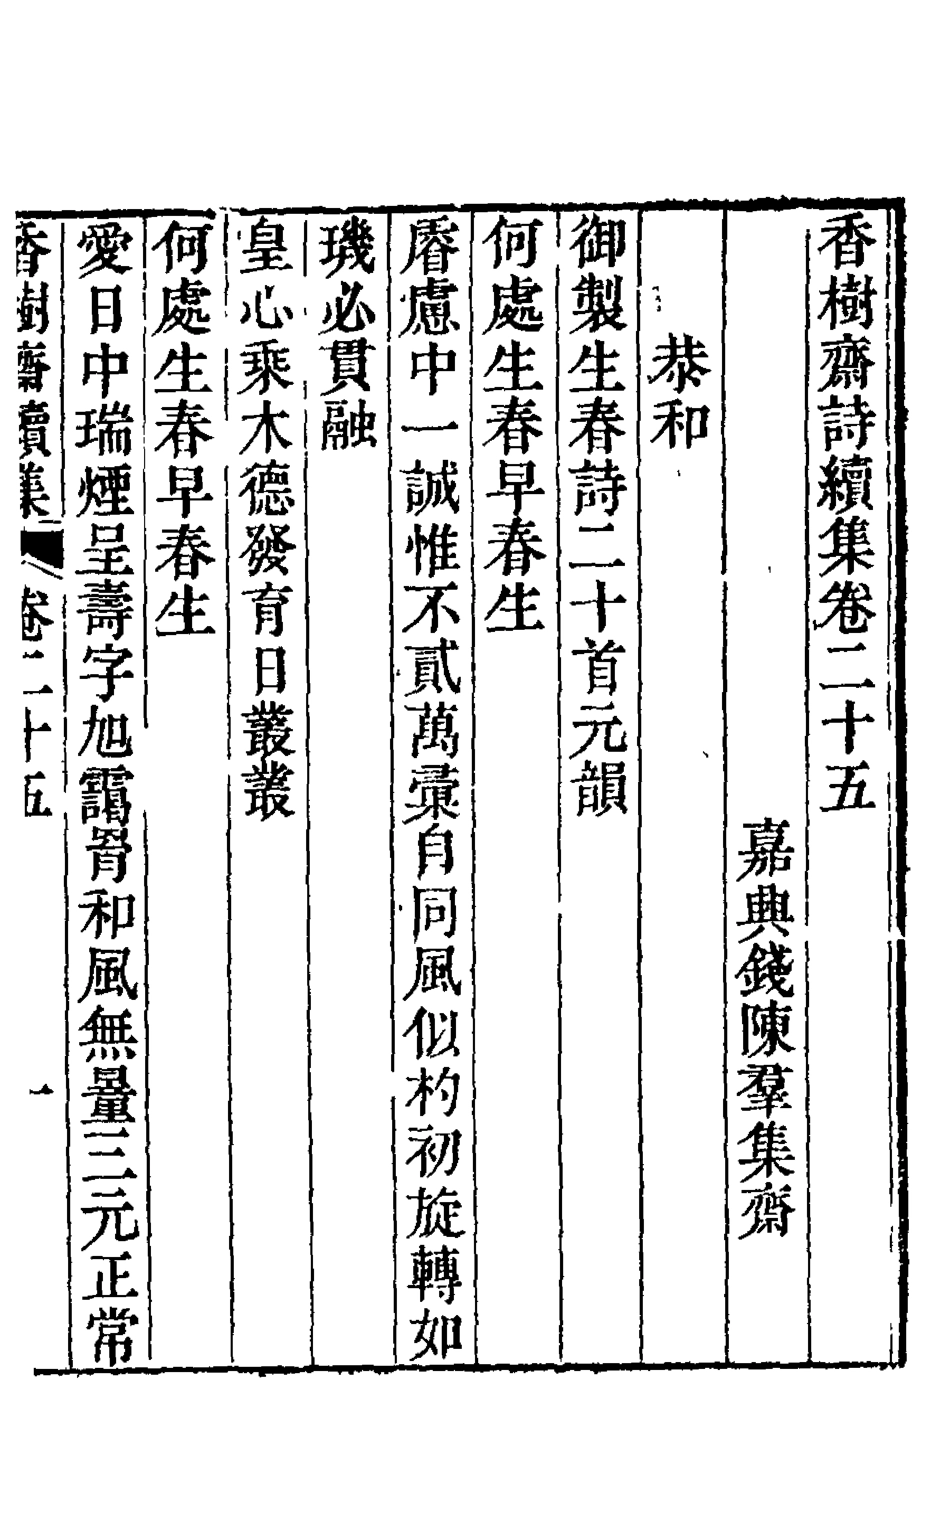 香樹齋詩續集卷二十五
嘉興錢陳羣集齋
恭和
御製生春詩二十首元韻
何處生春早春生
睿慮中一誠惟不貳萬彙自同風似杓初旋轉如
璣必貫融
皇心乘木德發育日叢叢
何處生春早春生
愛日中瑞煙呈壽字旭靄胷和風無量三元正常
香樹齋續集 卷二十五 一